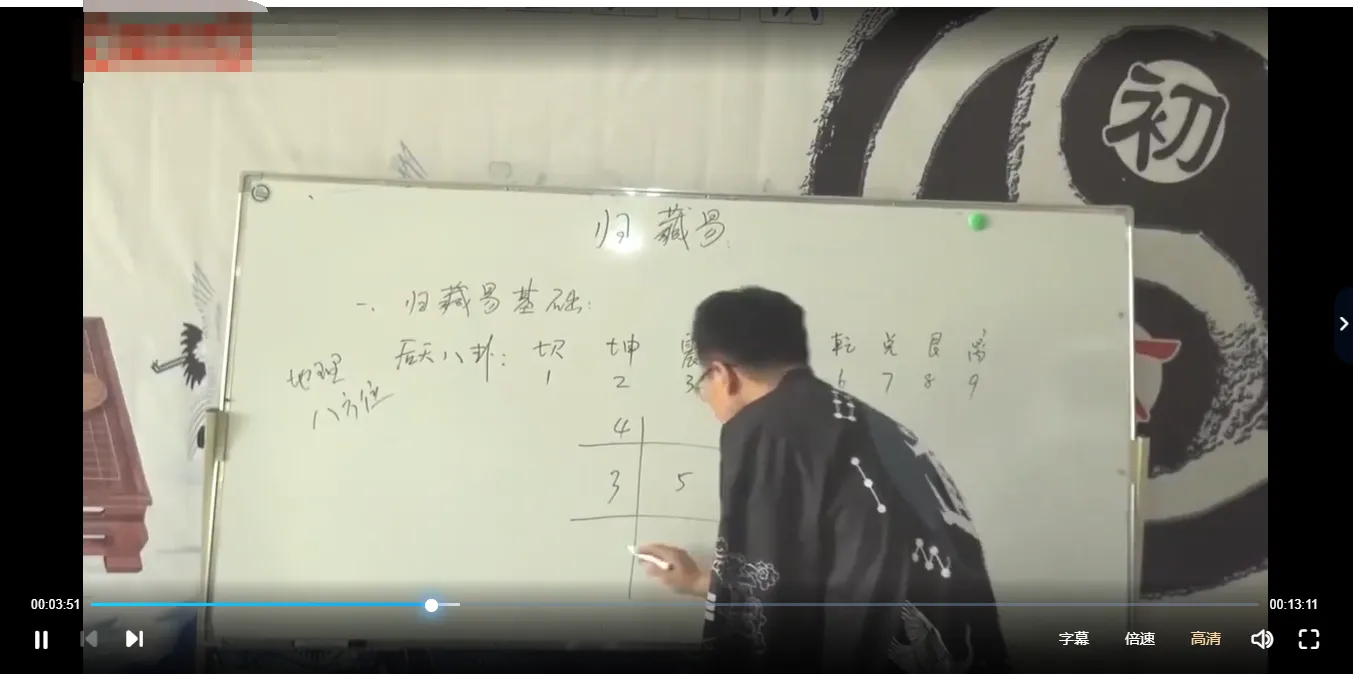 初
归藏易
一、归藏易基础：
后天八卦：坎 坤 震 乾 兑 艮 离
1 2 3 6 7 8 9
地理
八方位
4
3 5
00:03:51 00:13:11
字幕 倍速 高清